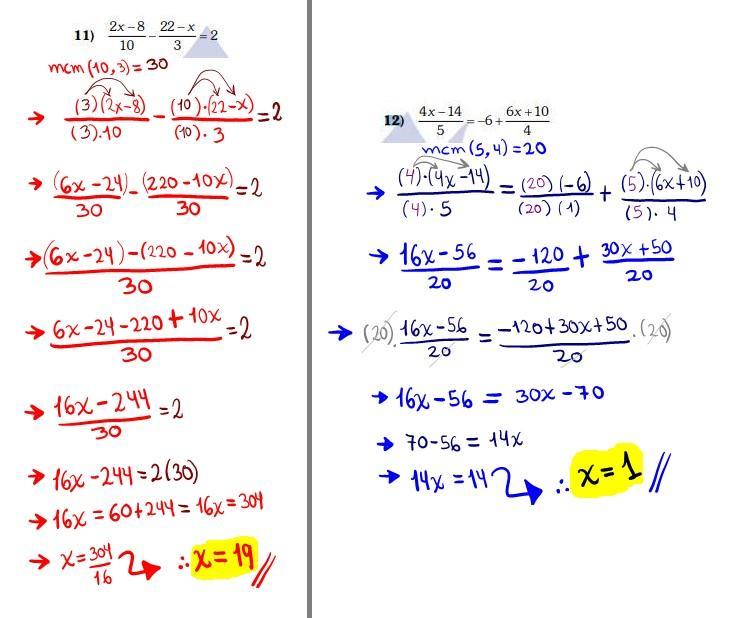 11) (2x-8)/10 - (22-x)/3 = 2
mcm (10,3) = 30
→ (3)(2x-8)/(3)·10 - (10)·(22-x)/(10)·3 = 2
→ (6x-24)/30 - (220-10x)/30 = 2
→ ((6x-24)-(220-10x))/30 = 2
→ (6x-24-220+10x)/30 = 2
→ (16x-244)/30 = 2
→ 16x-244=2(30)
→ 16x = 60+244 = 16x = 304
→ x = 304/16 ∴ x = 19 //
12) (4x-14)/5 = -6 + (6x+10)/4
mcm (5,4) = 20
→ (4)·(4x-14)/(4)·5 = (20)(-6)/(20)(1) + (5)·(6x+10)/(5)·4
→ (16x-56)/20 = -120/20 + (30x+50)/20
→ (20)·(16x-56)/20 = (-120+30x+50)/20 ·(20)
→ 16x-56 = 30x-70
→ 70-56 = 14x
→ 14x = 14 ∴ x = 1 //